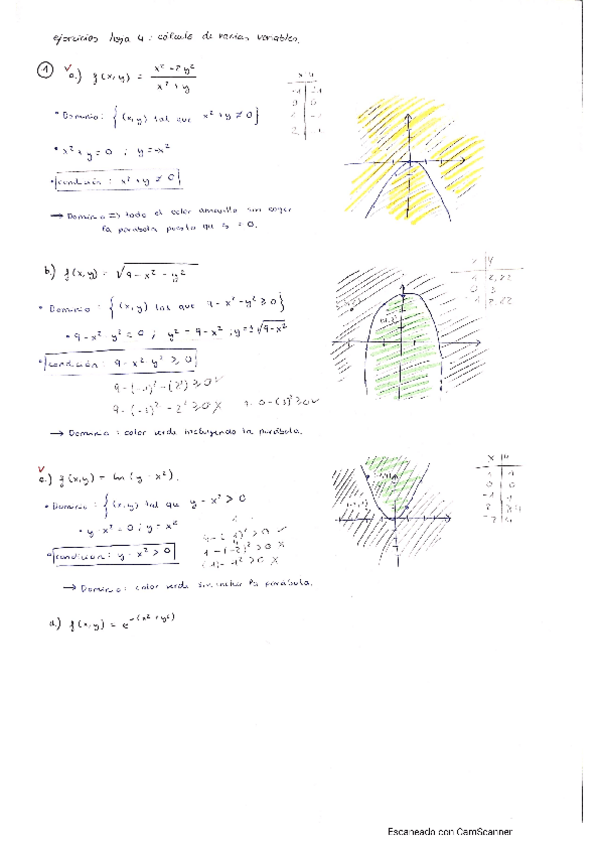 ejercicios hoja 4: cálculo de varias variables.
① a.) f(x,y) = x² - 7y² / x² + y
• Dominio: {(x,y) tal que x² + y ≠ 0}
• x² + y = 0 ; y = -x²
• condición: x² + y ≠ 0
→ Dominio => todo el color amarillo sin coger
la parábola puesto que es = 0.
b.) f(x,y) = √9 - x² - y²
• Dominio: {(x,y) tal que 9 - x² - y² ≥ 0}
• 9 - x² - y² = 0 ; y² = 9 - x² ; y = ±√9 - x²
• condición: 9 - x² - y² ≥ 0
→ Dominio: color verde incluyendo la parábola.
c.) f(x,y) = ln (y - x²).
• Dominio: {(x,y) tal que y - x² > 0
• y - x² = 0 ; y = x²
• condición: y - x² > 0
→ Dominio: color verde sin incluir la parábola.
d.) f(x,y) = e^-(x² + y²)
Escaneado con CamScanner